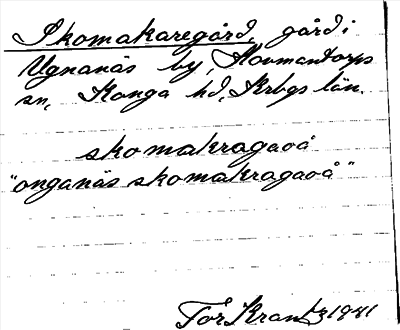 Skomakaregård, gård i
Ugnanäs by, Hovmantorps
sn, Konga hd, Krbgs län.
skomakragaoå
"onganäs skomakragaoå"
Tor Krantz 1941